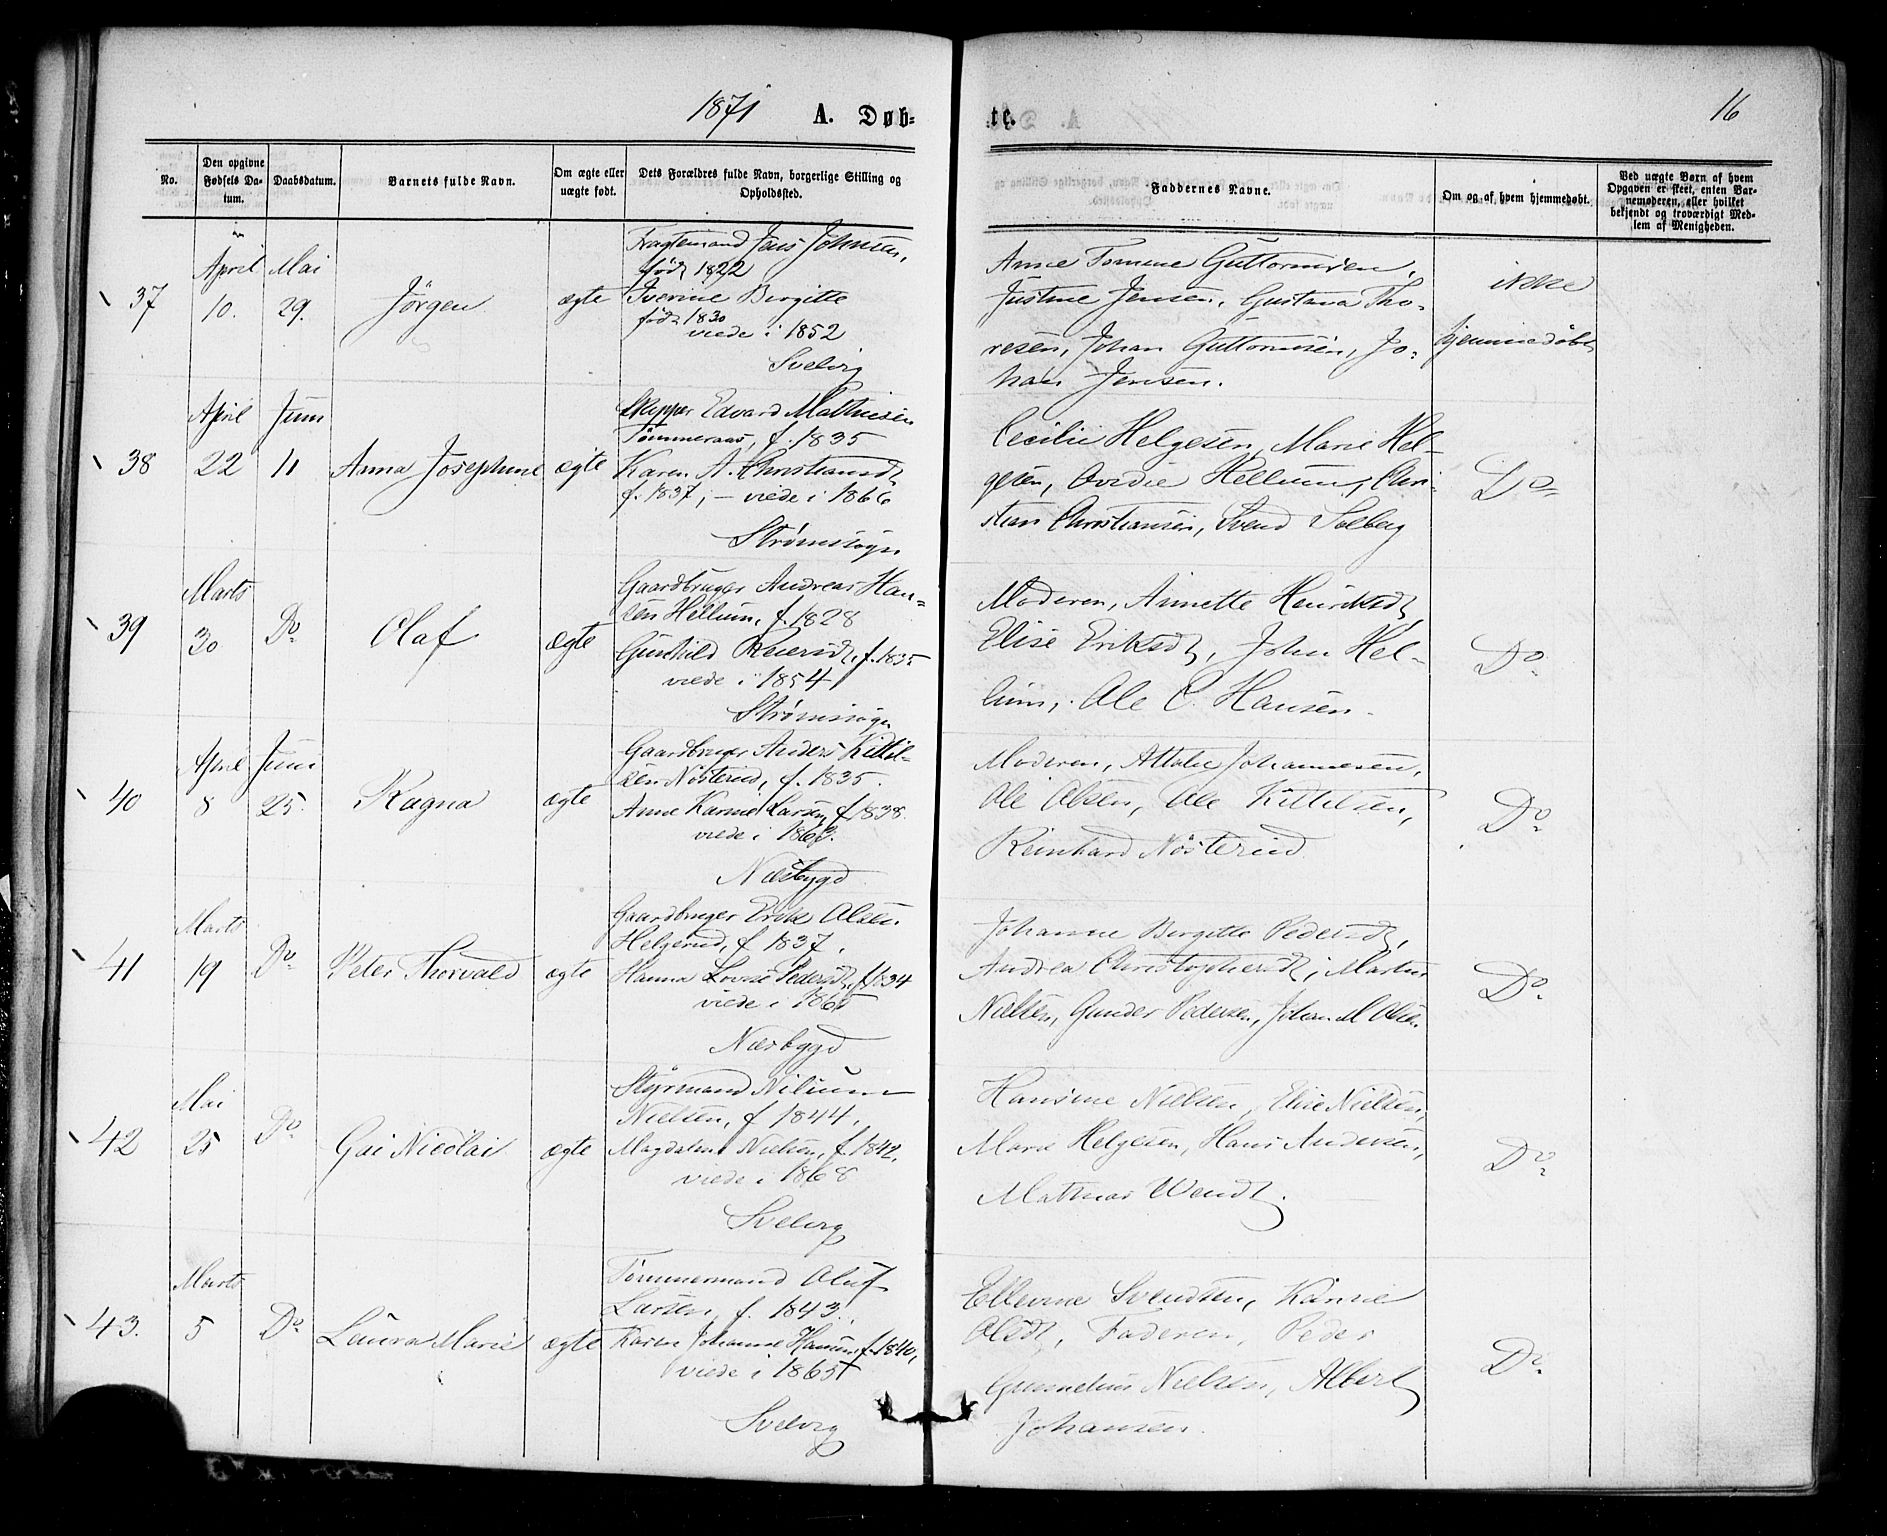 1871
A. Døb-
te.
16
No.
Den opgivne Fødsels Da-
tum.
Daabsdatum.
Barnets fulde Navn.
Om ægte eller
uægte født.
Dets Forældres fulde Navn, borgerlige Stilling og
Opholdssted.
Faddernes Navne.
Om og af hvem hjemmedøbt.
Ved uægte Børn af hvem
Opgaven er skeet, enten Bar-
nemoderen, eller hvilket
bekjendt og troværdigt Med-
lem af Menigheden.
37
April
10.
Mai
29.
Jörgen
ægte
Fragtemand Jens Johnsen,
född 1822
Iverine Birgitte
född 1830
viede i 1852
Svelvig
Anne Tomine Guttormsen,
Justine Jensen, Gustava Tho-
resen, Johan Guttormsen, Jo-
han Jensen.
ikke
hjemmedøbt
38
April
22
Juni
11
Anna Josephine
ægte
Skipper Edvard Mathiesen
Tømmeraas, f. 1835
Karen A. Christiansdt
f. 1837, – viede i 1866
Strømssogn
Cecilie Helgesen, Marie Hel-
gesen, Ovidie Hellum, Chri-
stian Christiansen, Svend Solberg
Do
39
Marts
30
Do
Olaf
ægte
Gaardbruger Andreas Han-
sen Hellum, f. 1828
Gunhild Reiersdt, f. 1835
viede i 1854
Strømssogn
Moderen, Annette Henriksdt
Elise Eriksdt, John Hel-
lum, Ole C. Hansen.
Do
40
April
8
Juni
25.
Ragna
ægte
Gaardbruger Anders Kittil-
sen Nøsterud, f. 1835.
Anne Karine Larsen, f 1838.
viede i 1863.
Nesbygd
Moderen, Attalie Johannesen,
Ole Olsen, Ole Kittelsen,
Reinhard Nøsterud
Do
41
Marts
19
Do
Peter Thorvald
ægte
Gaardbruger Erik Olsen
Helgerud, f 1837,
Hanna Lovise Pedersdt, f 1834
viede i 1865
Nesbygd
Johanne Birgitte Pedersdt,
Andrea Christophersdt, Martin
Nielsen, Gunder Pedersen, Johan M. Olsen
Do
42
Mai
25
Do
Gai Nicolai
ægte
Styrmand Nilium
Nielsen, f 1844,
Magdalene Nielsen, f 1842.
viede i 1868
Svelvig
Hansine Nielsen, Elise Nielsen,
Marie Helgesen, Hans Andersen,
Mathias Wendt.
Do
43.
Marts
5
Do
Laura Marie
ægte
Tømmermand Oluf
Larsen, f. 1843.
Karen Johanne Hansen, f. 1840,
viede i 1865
Svelvig
Ellevine Svendsen, Karine
Olsdt, Faderen, Peder
Gunnelius Nielsen, Albert
Johansen.
Do